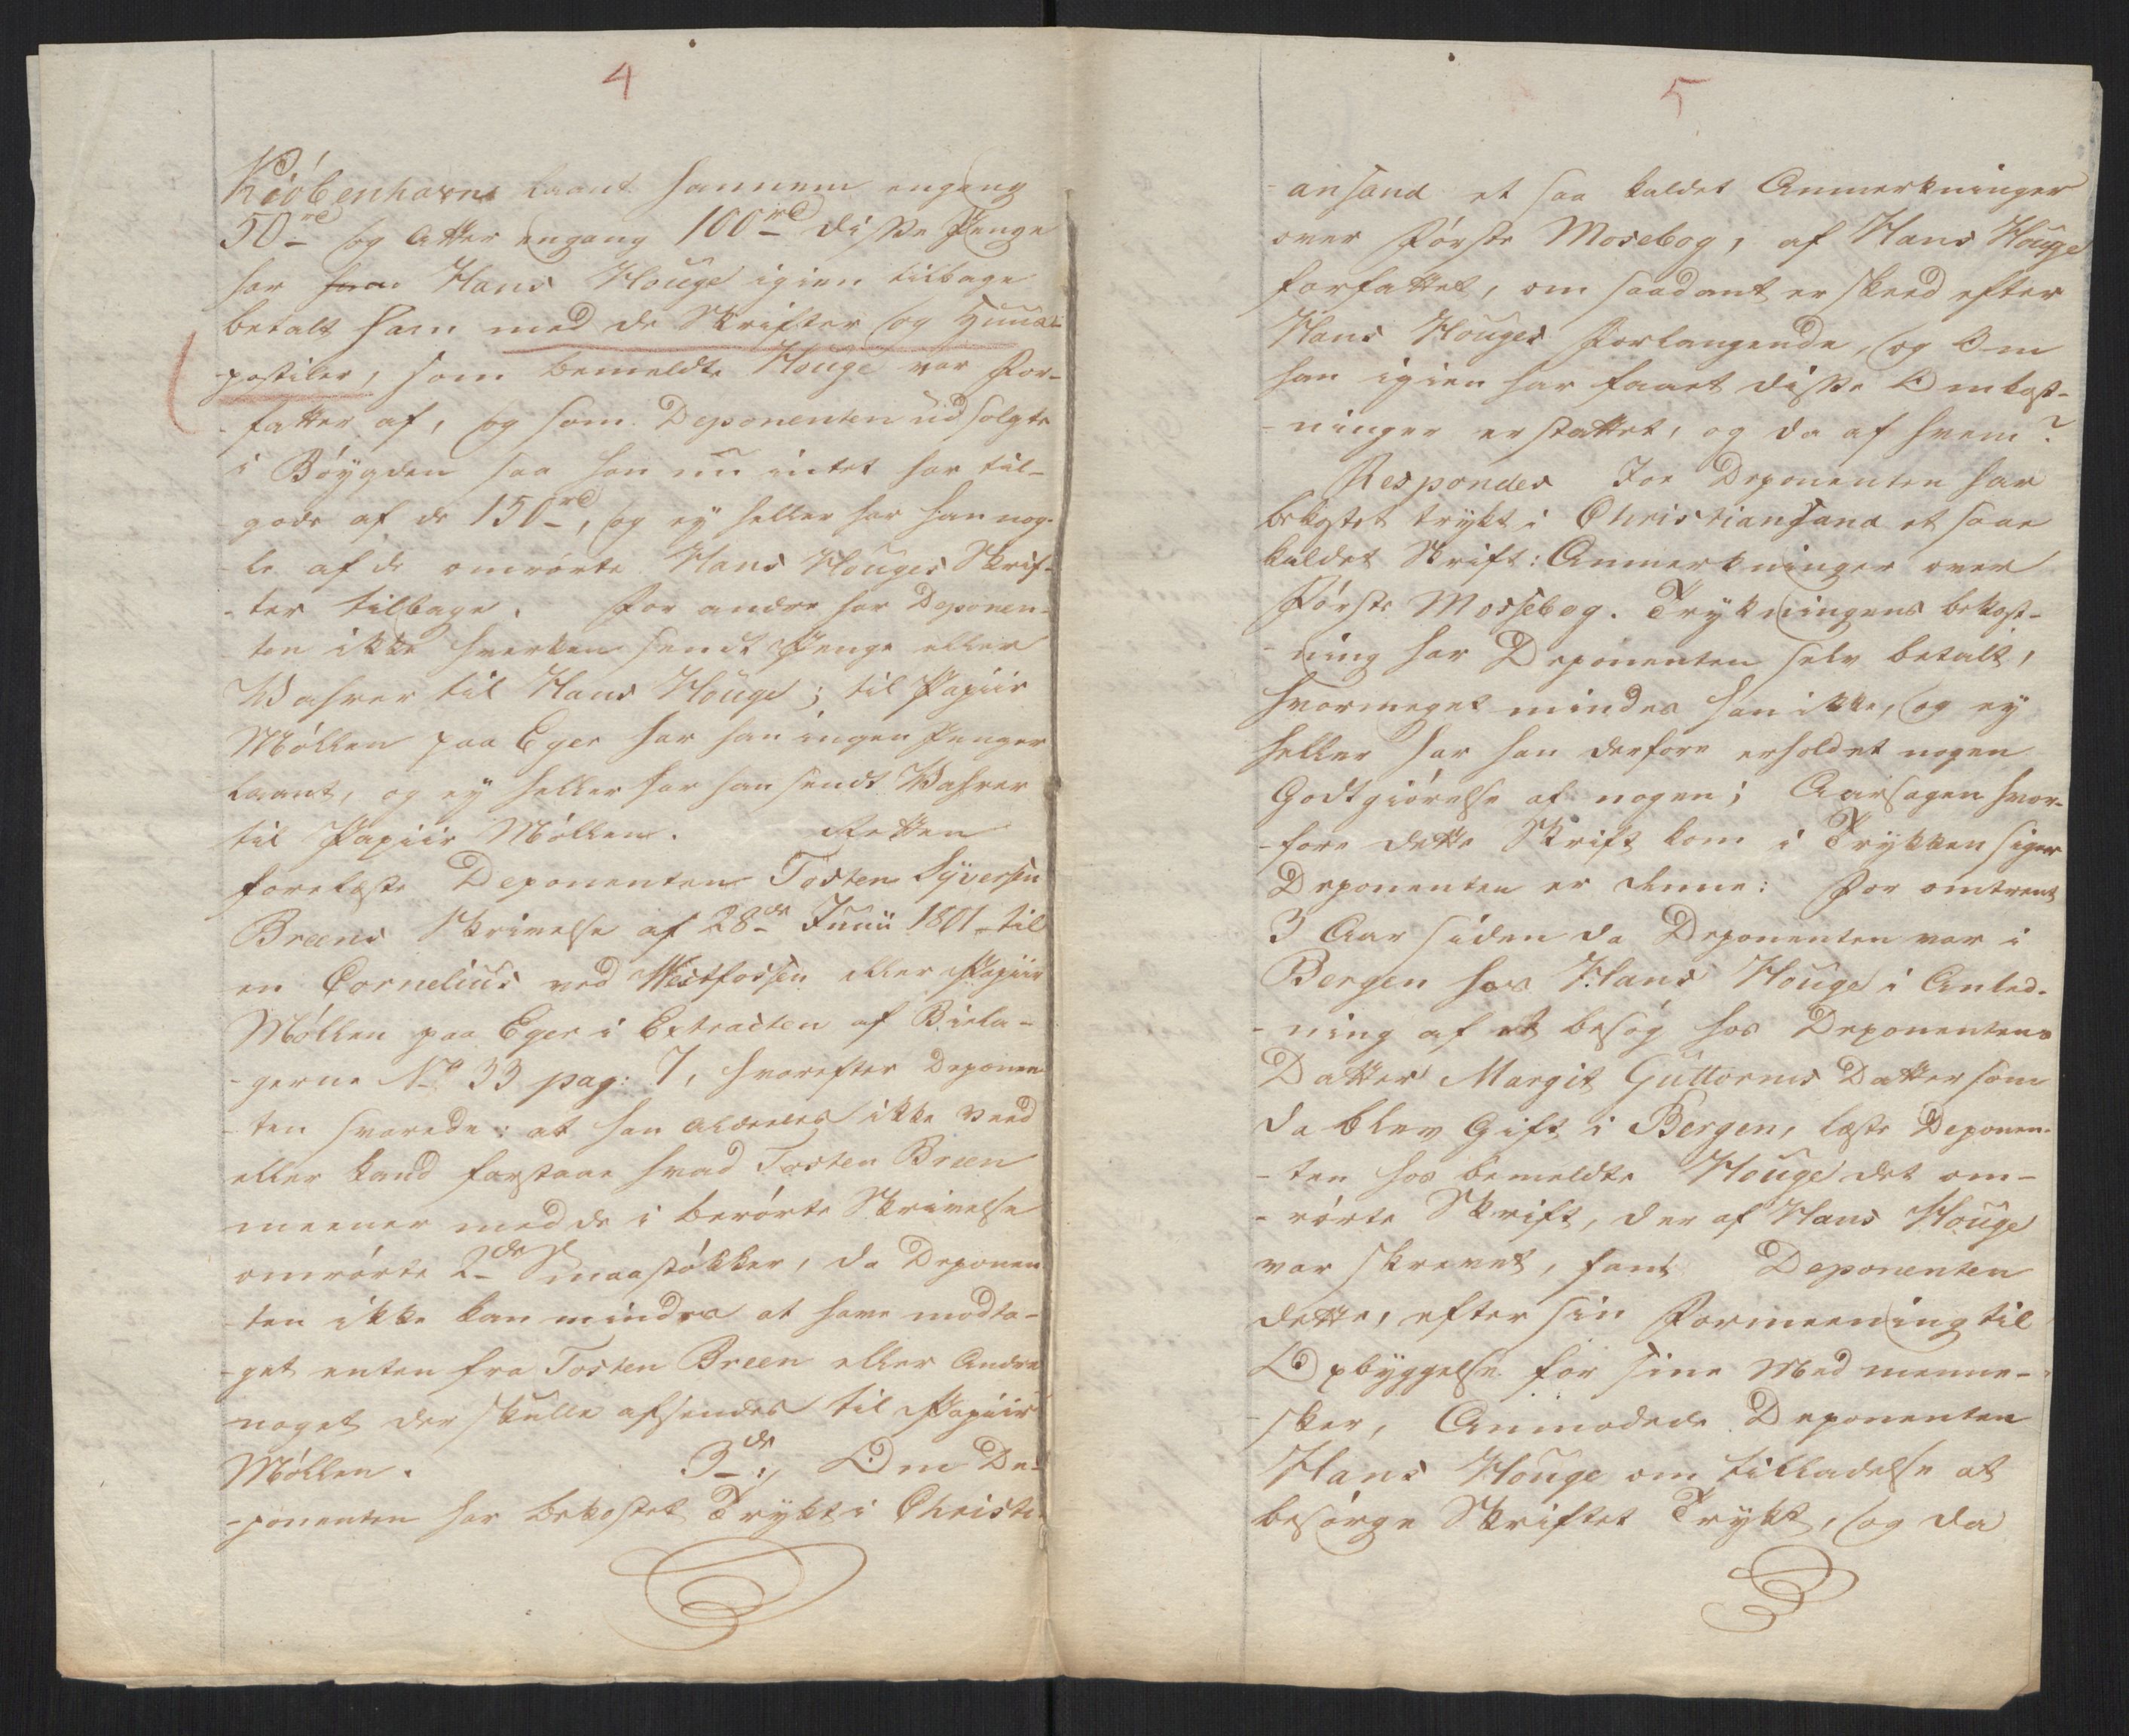 4
Kiöbenhavn laant hannem engang
50rd og atter engang 100rd disse Penge
har Hans Houge igien tilbage
betalt ham med de Skrifter og Huus-
postiler, som bemeldte Houge var For-
-fatter af, og som Deponenten udsolgte
i Böygden saa han nu intet har til-
gode af de 150rd, og ey heller har han nog-
le af de omrörte Hans Houges Skrif-
-ter tilbage. For andre har Deponen-
ten ikke hverken sendt Penge eller
Wahrer til Hans Houge; til Papiir
Möllen paa Eger har han ingen Penger
laant, og ey heller har han sendt Wahrer
til Papiir Möllen. Retten
forelæste Deponenten Tosten Syversen
Breens Skrivelse af 28de Junii 1801 til
en Cornelius ved Westfossen eller Papiir
Möllen paa Eger i Extracten af Bila-
-gerne No 33 pag: 7, hvorefter Deponen
-ten svarede: at han aldeeles ikke veed
eller kand forstaae hvad Tosten Breen
meener med de i berörte Skrivelse
omrörte 2de Smaastökker, da Deponen
-ten ikke kan mindes at have modta-
-get enten fra Tosten Breen eller Andre
noget der skulle afsendes til Papiir
Möllen. 3de:, Om De-
-ponenten har bekostet Trykt i Christi-
5
-ansand et saa kaldet Anmerkninger
over Förste Mosebog, af Hans Houge
forfattet, om saadant er skeed efter
Hans Houges Forlangende, og Om
han igien har faaet disse Ombkost-
-ninger erstattet, og da af hvem?
Respondes Joe Deponenten har
bekostet trykt i Christiansand et saae
kaldet Skrift: Anmerkninger over
Förste Mossebog. Trykningens bekost-
-ning har Deponenten selv betalt,
hvormeget mindes han ikke, og ey
heller har han derfore erholdet nogen
Godtgiörelse af nogen; Aarsagen hvor-
-fore dette Skrift kom i Trykken siger
Deponenten er denne: For omtrent
3 Aar siden da Deponenten var i
Bergen hos Hans Houge i Anled-
-ning af et besög hos Deponentens
Datter Margit Guttorms Datter som
da blev Gift i Bergen, læste Deponen-
-ten hos bemeldte Houge det om-
-rörte Skrift, der af Hans Houge
var skrevet, fant Deponenten
dette, efter sin Formeening til
Opbyggelse for sine Med menne-
-sker, Anmodede Deponenten
Hans Houge om tilladelse at
besörge Skriftet Trykt, og da